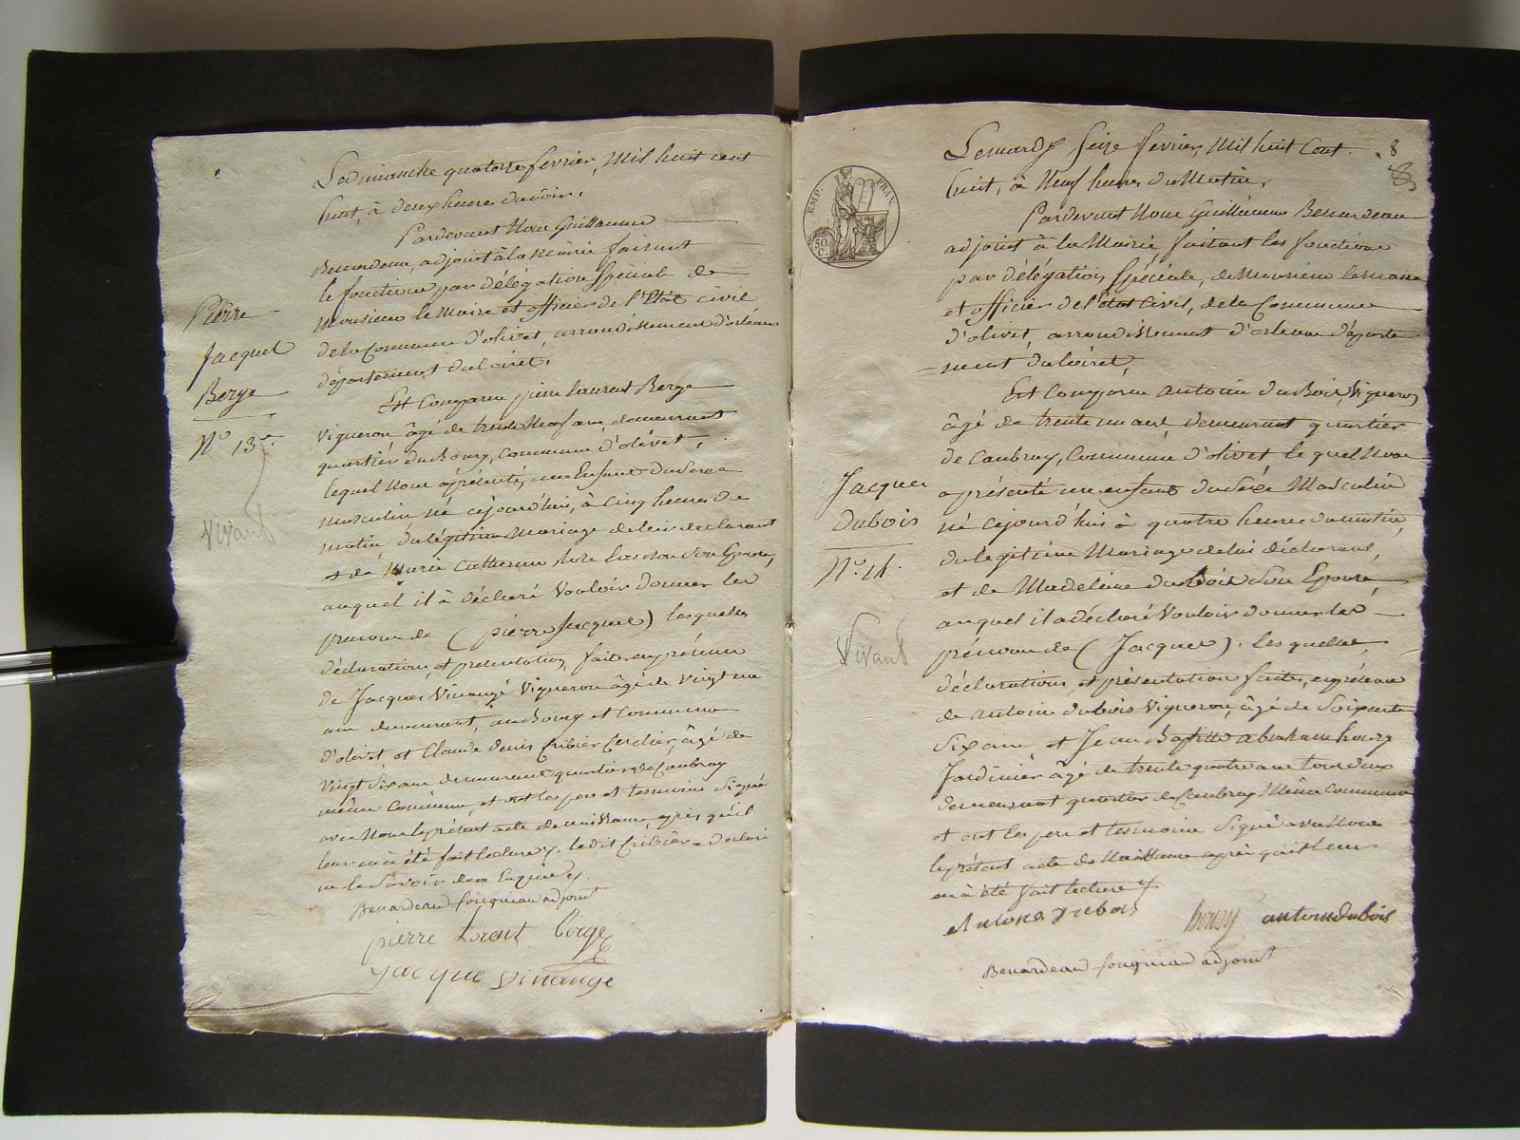 Le dimanche quatorze fevrier, mil huit cent
huit, à deux heures du soir,
Pardevant Nous Guillaume
Benardeau, adjoint à la Mairie faisant
le fonctions par délégation spéciale de
Monsieur le Maire et officier de l'état civil
de la Commune d'olivet, arrondissement d'orléans
département du loiret,
Pierre
Jacques
Berge
N° 13
Vivant
Est Comparu pierre laurent Berge
vigneron, âgé de trente Neuf ans, demeurant
quartier du Bourg, Commune d'olivet,
lequel Nous a présenté, un Enfant du Sexe
masculin né cejourd'hui, à Cinq heures du
matin du légitime Mariage de lui declarant
et de Marie Catherine Son Epouse,
auquel il à déclaré Vouloir donner les
prenoms de (pierre Jacques) lesquelles
déclaration, et présentation, faites en présence
de Jacques Vinauge Vigneron âgé de Vingt un
ans demeurant, au Bourg et Commune
d'olivet, et Claude denis Cribier Cerclier, âgé de
Vingt Six ans demeurant quartier de Caubray
même Commune, et ont les pere et temoins Signé
avec Nous le présent acte de naissance, après qu'il
leur en à été fait lecture, le dit Cribier a déclaré
ne le Savoir de ce Enquis
Benardeau adjoint
pierre lorent berge
jacque vinauge
8
Le mardy Seize fevrier, Mil huit Cent
huit, à Neuf heures du Matin,
EMP. FRAN.
50
C.
Pardevant Nous Guillaume Benardeau
adjoint à la Mairie faisant les fonctions
par délégation Spéciale, de Monsieur le maire
et officier de l'état Civil, de la Commune
d'olivet, arrondissement d'orleans départe
ment du loiret,
Jacques
Dubois
N° 14
Vivant
Est Comparu antoine du Bois, Vigneron
âgé de trente un ans, demeurant quartier
de Caubray, Commune d'olivet le quel Nous
a présenté un enfant du Sexe Masculin
né cejourd'hui à quatre heures du matin,
du legitime Mariage de lui déclarant,
et de Madeleine du Bois Son Epouse
auquel il a déclaré Vouloir donner les
prénoms de (Jacques). les quelles
déclarations, et présentation faites, en présence
de antoine dubois Vigneron, âgé de Soixante
Six ans, et Jean Baptiste abraham houzy
Jardinier âgé de trente quatre ans tous deux
demeurant quartier de Caubray Même Commune
et ont les pere et temoins Signé avec Nous
le présent acte de Naissance après qu'il leur
en à été fait lecture
Antoine Dubois houzy antoine dubois
Benardeau adjoint